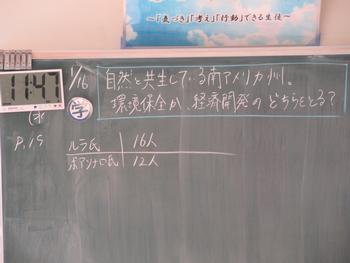 ～「気づき」「考え」「行動」できる生徒～
11:47
1/16
学
自然と共生している南アメリカ州。
環境保全か経済開発のどちらをとる?
P.19
ルラ氏 16人
ボアソナロ氏 12人